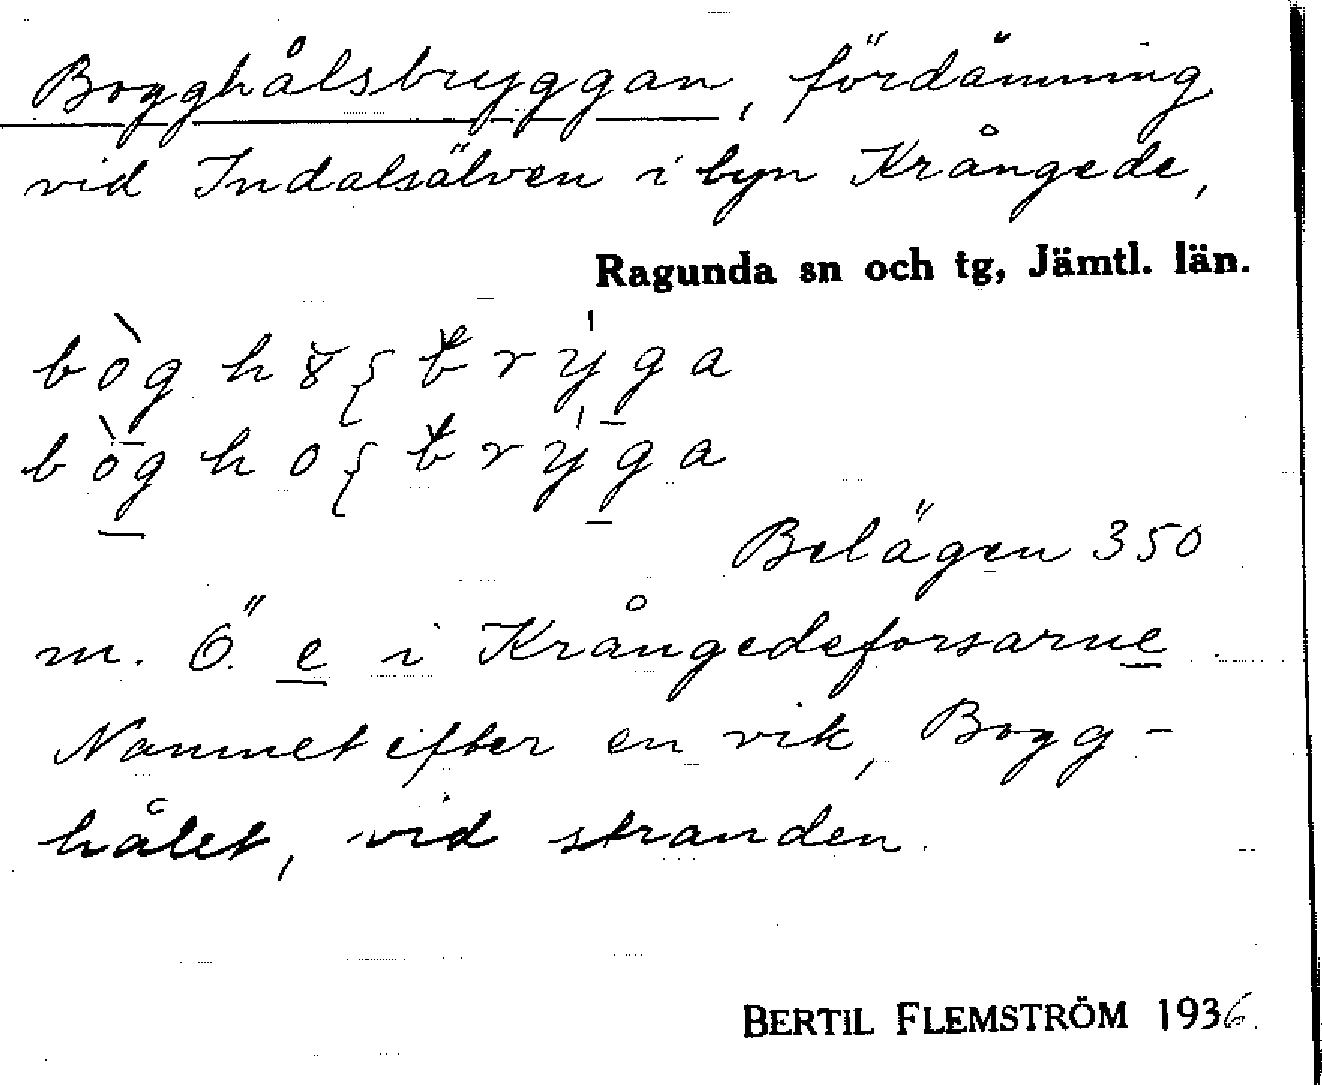 Bogghålsbryggan, fördämning
vid Indalsälven i byn Krångede,
Ragunda sn och tg, Jämtl. län.
Belägen 350
m. Ö. e i Krångedeforsarne.
Namnet efter en vik, Bogg-
hålet, vid stranden.
BERTIL FLEMSTRÖM 1936.